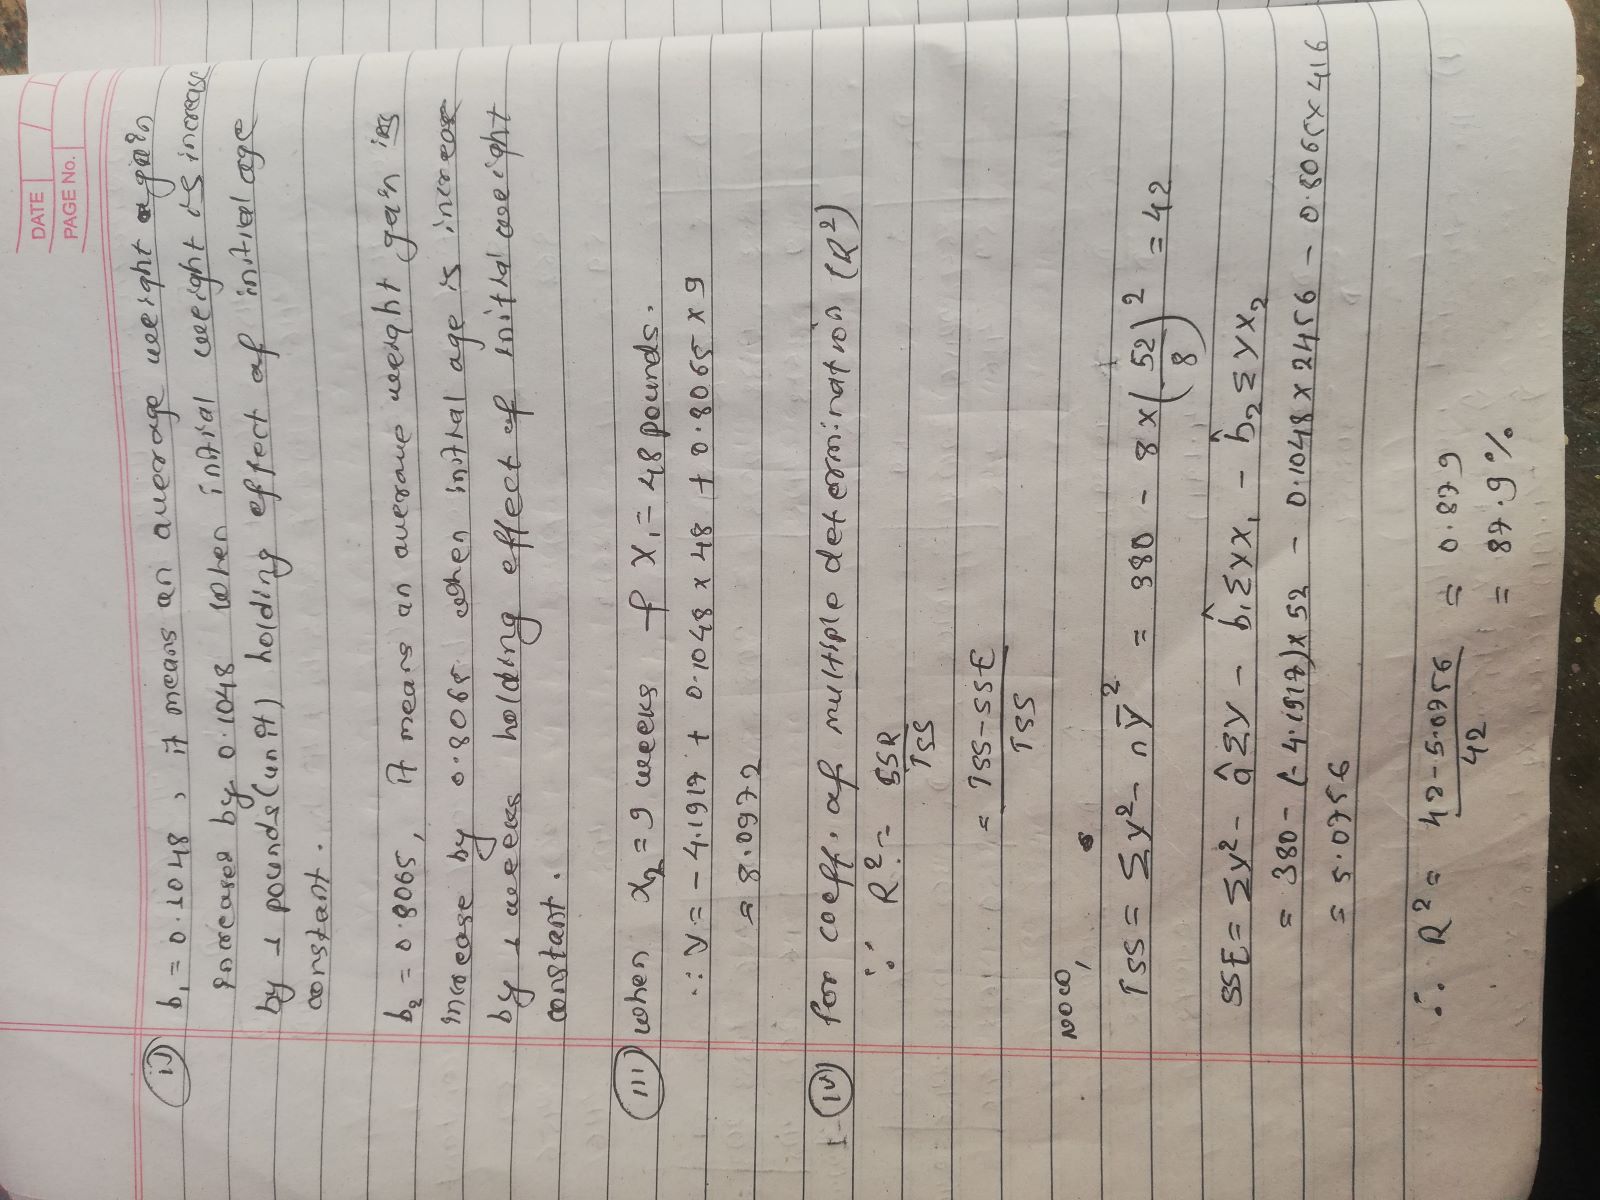 DATE
PAGE No.
ii) b₁ = 0.1048, it means an average weight gain
increases by 0.1048 when initial weight is increase
by 1 pounds (unit) holding effect of initial age
constant.
b₂ = 0.8065, it means an averave weight gain is
increase by 0.8065 when initial age is increase
by 1 weeks holding effect of initial weight
constant.
iii) when x₂ = 9 weeks f x₁ = 48 pounds.
∴ y = - 4.1917 + 0.1048 × 48 + 0.8065 × 9
= 8.0972
iv) for coeff. of multiple determination (R²)
∵ R² = SSR
TSS
= TSS-SSE
TSS
Now,
TSS = Σy² - nȳ² = 380 - 8×(52/8)² = 42
SSE = Σy² - âΣy - b̂₁Σyx₁ - b̂₂Σyx₂
= 380 - (- 4.1917)× 52 - 0.1048 × 2456 - 0.8065× 416
= 5.0756
∴ R² = 42-5.0756 = 0.879
42
= 87.9%